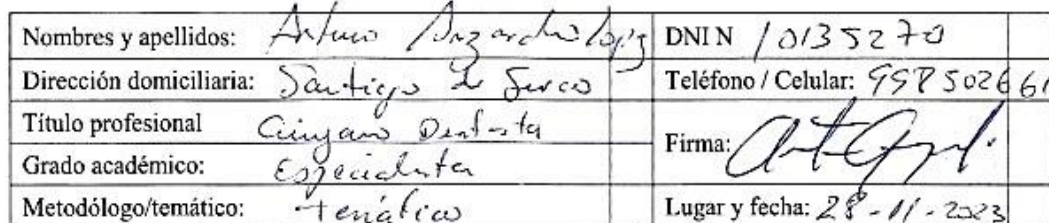 Nombres y apellidos: Arturo López DNI N 10135270
Dirección domiciliaria: Santiago de Surco Teléfono / Celular: 998502661
Título profesional Cirujano Dentista
Firma:
Grado académico: Especialista
Metodólogo/temático: temático Lugar y fecha: 28-11-2023